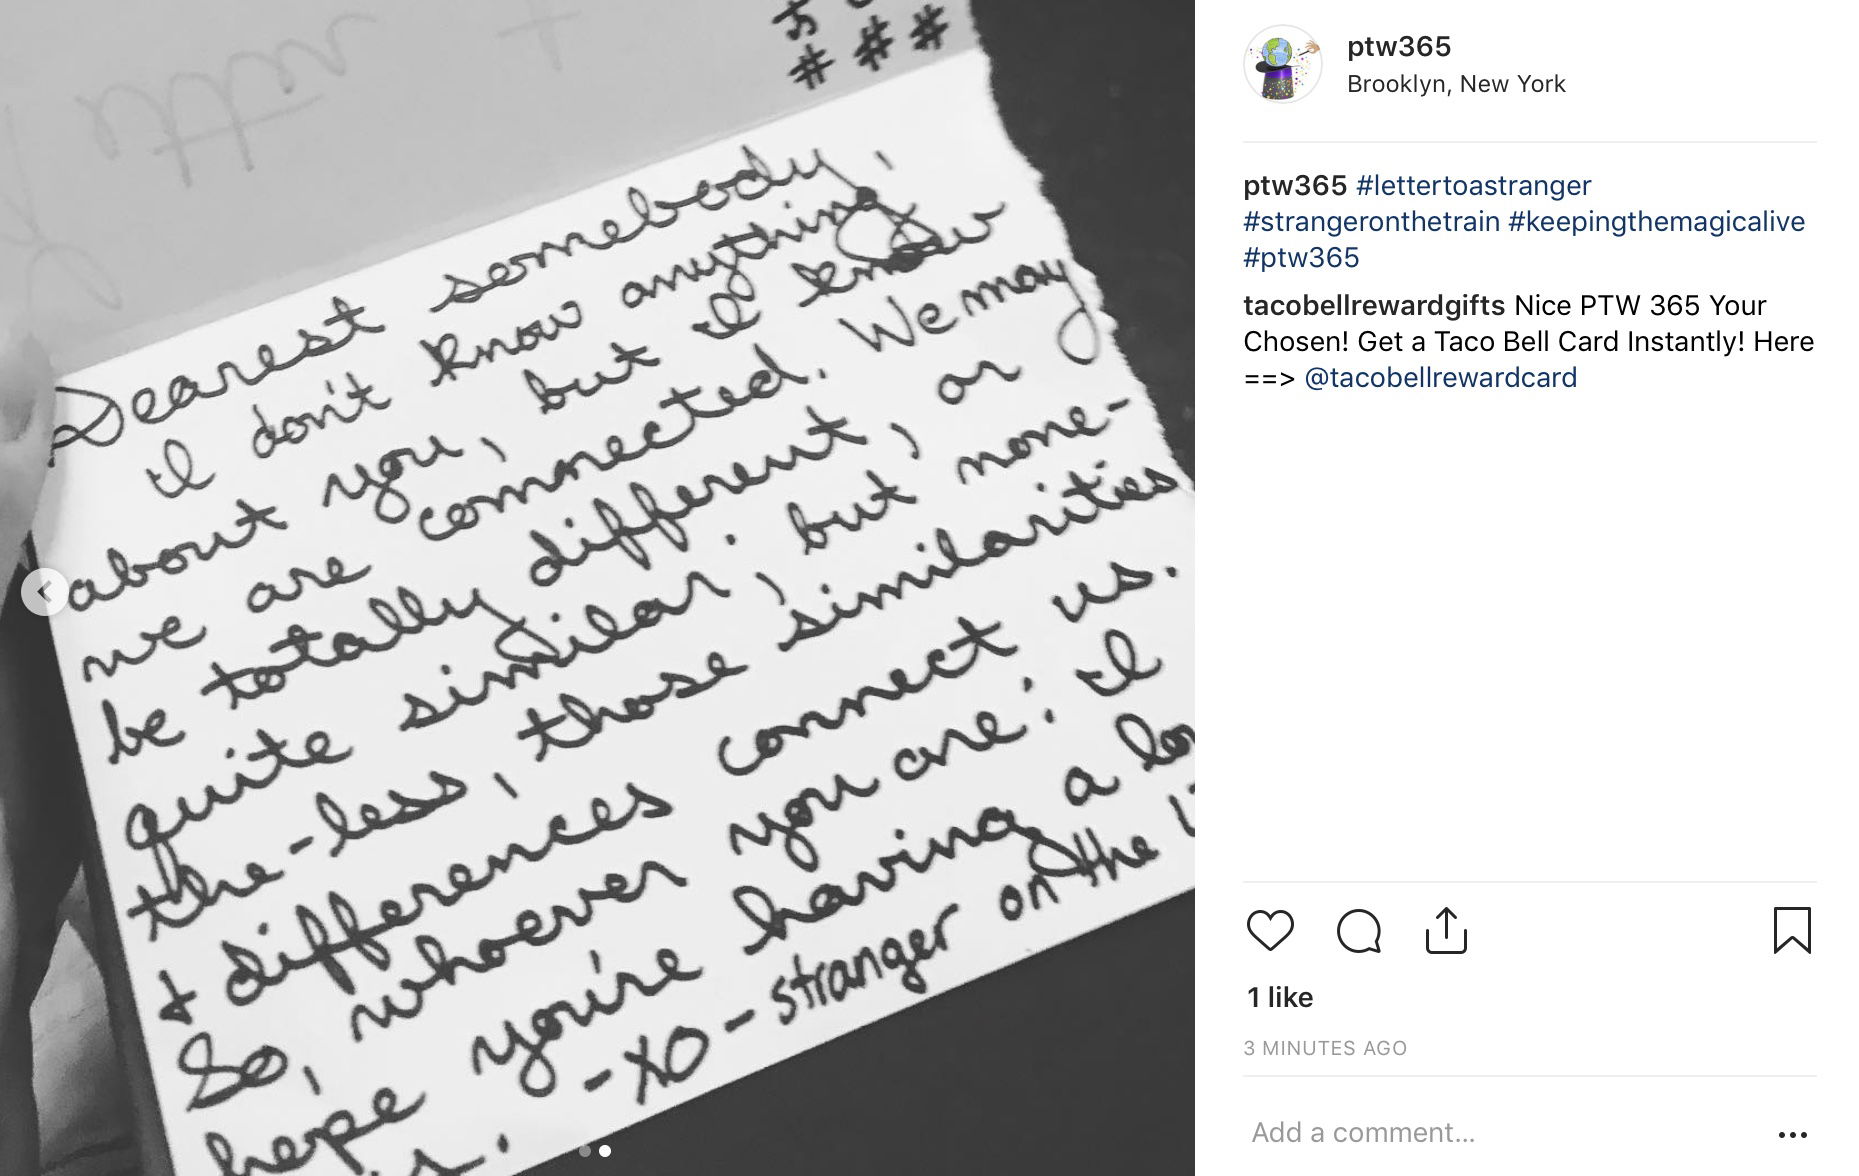 # # #
Dearest somebody,
I don't know anything
about you, but I know
we are connected. We may
be totally different, or
quite similar, but none-
the-less, those similarities
+ differences connect us.
So, whoever you are: I
hope you're having a
-XO- stranger on the
ptw365
Brooklyn, New York
ptw365 #lettertoastranger
#strangeronthetrain #keepingthemagicalive
#ptw365
tacobellrewardgifts Nice PTW 365 Your
Chosen! Get a Taco Bell Card Instantly! Here
==> @tacobellrewardcard
1 like
3 MINUTES AGO
Add a comment...